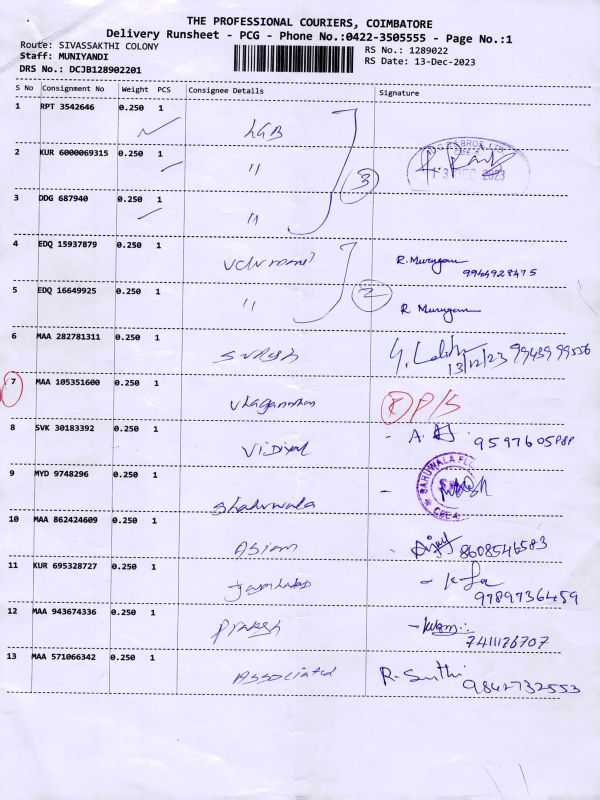 THE PROFESSIONAL COURIERS, COIMBATORE
Delivery Runsheet - PCG - Phone No.:0422-3505555 - Page No.:1
Route: SIVASSAKTHI COLONY
Staff: MUNIYANDI
DRS No.: DCJB128902201
RS No.: 1289022
RS Date: 13-Dec-2023
S No Consignment No Weight PCS Consignee Details Signature
1 RPT 3542646 0.250 1
LGB
2 KUR 6000069315 0.250 1
"
13 DEC 2023
3
3 DDG 687940 0.250 1
"
4 EDQ 15937879 0.250 1
R. Murugan
9944928475
2
5 EDQ 16649925 0.250 1
" R Murugan
6 MAA 282781311 0.250 1
13/12/23 9943999556
7 MAA 105351600 0.250 1
P/S
8 SVK 30183392 0.250 1
Vidiyal - A.
9 MYD 9748296 0.250 1
SAHUWALA
Shahuwala -
10 MAA 862424609 0.250 1
Asian - Ajay 8608546583
11 KUR 695328727 0.250 1
9789736459
12 MAA 943674336 0.250 1
Prakash
7411126707
13 MAA 571066342 0.250 1
Associated R. Santhi
9842732553